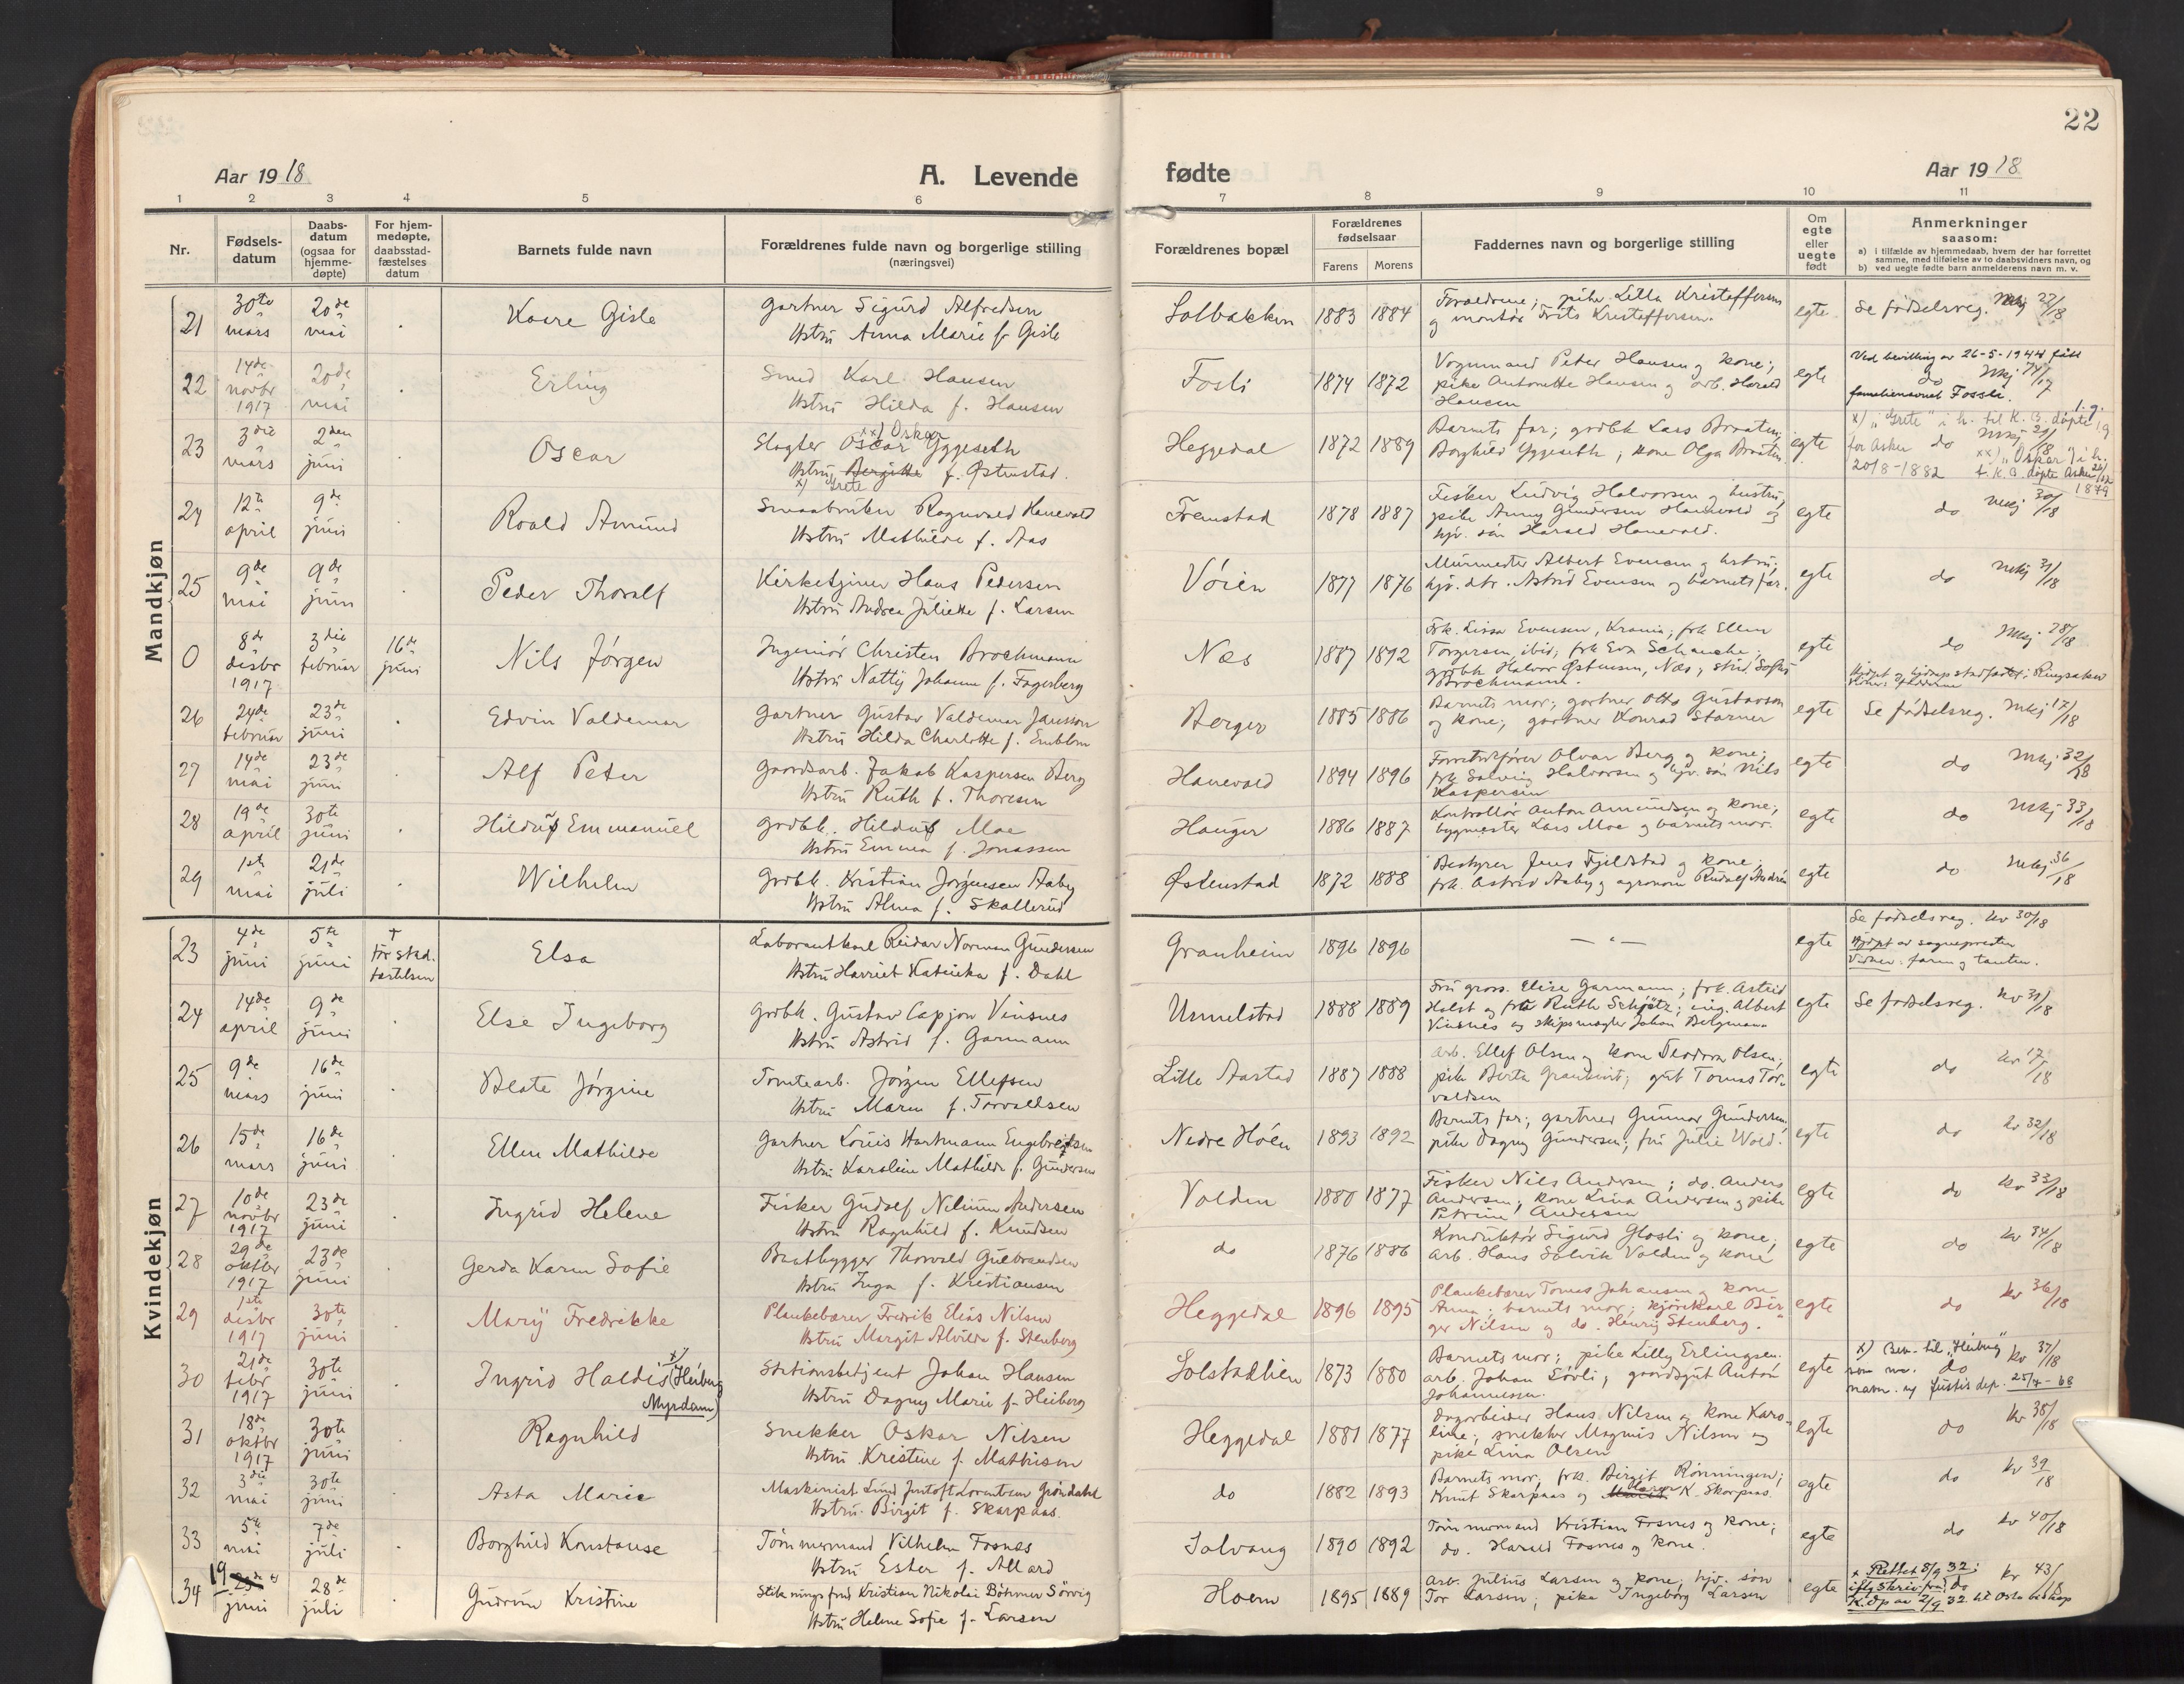 22
Aar 1918
A. Levende
fødte
Aar 1918
1 2 3 4 5 6 7 8 9 10 11
Nr.
Fødsels-
datum
Daabs-
datum
(ogsaa for
hjemme-
døpte)
For hjem-
medøpte,
daabsstad-
fæstelses
datum
Barnets fulde navn
Forældrenes fulde navn og borgerlige stilling
(næringsvei)
Forældrenes bopæl
Forældrenes
fødselsaar
Farens Morens
Faddernes navn og borgerlige stilling
Om
egte
eller
uegte
født
Anmerkninger
saasom:
a) i tilfælde av hjemmedaab, hvem der har forrettet
samme, med tilføielse av to daabsvidners navn, og
b) ved uegte fødte barn anmelderens navn m. v.
Mandkjøn
21 30te mars 20de mai Kaare Gisle
Gartner Sigurd Alfredsen
Hstru Anna Marie f. Gisle
Solbakken 1883 1884
Forældrene; pike Lilla Kristoffersen
og montør Frits Kristoffersen.
egte
Se fødselsreg. Mkj 22/18
22 14de novbr 1917 20de mai Erling
Smed Karl Hansen
Hstru Hilda f. Hansen
Fosli 1874 1872
Vognmand Peter Hansen og kone;
pike Antonette Hansen og arb. Harald
Hansen
egte
Ved bevilling av 26-5-1944 fått
do Mkj 74/17
familienavnet Fossli.
23 3die mars 2den juni Oscar
xx) Oskar
Slagter Oscar Yggeseth
Hstru Bergitte f. Østenstad.
x) Grete
Heggedal 1872 1889
Barnets far; grdbr Lars Braaten;
Borghild Yggeseth; kone Olga Braaten.
egte
x) "Grete" i h. til K. B. døpte
for Asker do Mkj 21/18
20/8-1882 xx) "Oskar" i h.
t. K. B. døpte Asker 26/12
1879
24 12te april 9de juni Roald Amund
Smaabruker Ragnvald Hanevold
Hstru Mathilde f. Aas
Fremstad 1878 1887
Fisker Ludvig Halvorsen og hustru,
pike Anny Gundersen Hanevold og
hjv. søn Harald Hanevold.
egte
do Mkj 30/18
25 9de mai 9de juni Peder Thoralf
Kirketjener Hans Pedersen
Hstru Andrea Juliette f. Larsen
Vøien 1877 1876
Murmester Albert Evensen og hstru;
hjv. dtr. Astrid Evensen og barnets far.
egte
do Mkj 31/18
0 8de desbr 1917 3die februar 16de juni Nils Jørgen
Ingeniør Christen Brochmann
Hstru Natty Johanne f. Fagerberg
Næs 1887 1892
Frk. Lissa Evensen, Krania; frk Ellen
Torgersen, ibid; frk Eva Schanche;
grdbr. Halvor Østensen, Næs; stud. Sofus
Brochmann.
egte
do Mkj. 28/18
26 24de februar 23de juni Edvin Valdemar
Gartner Gustav Valdemar Jansson
Hstru Hilda Charlotte f. Emblem
Berger 1885 1886
Barnets mor; gartner Otto Gustavson
og kone; gartner Konrad Starner
egte
Se fødselsreg. Mkj 17/18
27 14de mai 23de juni Alf Peter
Gaardsarb. Jakob Kaspersen Berg
Hstru Ruth f. Thoresen
Hanevold 1894 1896
Forretnfører Olvar Berg og kone;
frk Solveig Halvorsen og hjv. søn Nils
Kaspersen
egte
do Mkj. 32/18
28 19de april 30te juni Hilduf Emmanuel
Grdbr. Hilduf Moe
Hstru Emma f. Jonassen
Hauger 1886 1887
Kontrollør Anton Amundsen og kone;
bygmester Lars Moe og barnets mor.
egte
do Mkj 33/18
29 1ste mai 21de juli Wilhelm
Grdbr. Kristian Jørgensen Aaby
Hstru Alma f. Skallerud
Østenstad 1872 1888
Bestyrer Jens Fjeldstad og kone;
frk. Astrid Aaby og agronom Rudolf Andrén
egte
do Mkj 36/18
Kvindekjøn
23 4de juni 5te juni † før stad.fæstelsen Elsa
Laborantkarl Reidar Norman Gundersen
Hstru Harriet Katinka f. Dahl
Granheim 1896 1896
— " —
egte
Se fødselsreg. kv 30/18
Hjdpt av sogneprestem
Vidner: faren og tanten.
24 14de april 9de juni Else Ingeborg
Grdbr. Gustav Capjon Vinsnes
Hstru Astrid f. Garmann
Unnelstad 1888 1889
Fru gross. Elise Garmann; frk. Astrid
Holst og frk Ruth Schjøtz; ing. Albert
Vinsnes og skipsmægler Johan Bergmann
egte
Se fødselsreg. kv 31/18
25 9de mars 16de juni Beate Jørgine
Tomtearb. Jørgen Ellefsen
Hstru Maren f. Torvaldsen
Lille Aastad 1887 1888
Arb. Ellef Olsen og kone Teodora Olsen;
pike Berta Grankvist; gut Tomas Tor-
valdsen
egte
do kv 17/18
26 15de mars 16de juni Ellen Mathilde
Gartner Louis Hartmann Engebretsen
Hstru Karoline Mathilde f. Gundersen
Nedre Høen 1893 1892
Barnets far; gartner Gunnar Gundersen,
pike Dagny Gundersen; fru Julie Wold.
egte
do kv 32/18
27 10de novbr 1917 23de juni Ingrid Helene
Fisker Gudolf Nelium Andersen
Hstru Ragnhild f. Knudsen
Volden 1880 1877
Fisker Nils Andersen; do. Anders
Andersen; kone Lina Andersen og pike
Petrine Andersen
egte
do kv 33/18
28 29de oktbr 1917 23de juni Gerda Karen Sofie
Baatbygger Thorvald Gulbrandsen
Hstru Inga f. Kristiansen
do 1876 1886
Konduktør Sigurd Glosli og kone;
Arb. Hans Solvik Volden og kone
egte
do kv 34/18
29 1ste desbr 1917 30te juni Mary Fredrikke
Plankebærer Fredrik Elias Nilsen
Hstru Margit Alvilde f. Stenberg
Heggedal 1896 1895
Plankebærer Tomas Johansen og kone
Anna; barnets mor; kjørekarl Bir-
ger Nilsen og do. Henry Stenberg.
egte
do kv 36/18
30 21de febr 1917 30te juni Ingrid Haldis x) (Heiberg
Myrdam)
Stationsbetjent Johan Hansen
Hstru Dagny Marie f. Heiberg
Solstadlien 1873 1880
Barnets mor; pike Lilly Erlingsen.
arb. Johan Søvli; gaardsgut Anton
Johannessen.
egte
x) Bev. til "Heiberg" kv 37/18
som m. do
navn. av Justis dep. 25/4-68
31 18de oktbr 1917 30te juni Ragnhild
Snekker Oskar Nilsen
Hstru Kristine f. Mathisen
Heggedal 1881 1877
Dagarbeider Hans Nilsen og kone Karo-
line; snekker Magnus Nilsen og
pike Lina Olsen
egte
do kv 38/18
32 3die mai 30te juni Asta Marie
Maskinist Lund Jentoft Lorentsen Grøndahl
Hstru. Birgit f. Skarpaas.
do 1882 1893
Barnets mor; frk. Birgit Rønningen;
Knut Skarpaas og Maren K. Skarpaas
egte
do kv 39/18
33 5te mai 7de juli Borghild Konstanse
Tømmermand Vilhelm Fosnes
Hstru Ester f. Allard
Solvang 1890 1892
Tømmermand Kristian Fosnes og kone;
do. Harald Fosnes og kone.
egte
do kv 40/18
34 19 juni 28de juli Gudrun Kristine
Stikningsfmd Kristian Nikolai Böhmer Sørvig
Hstru Helene Sofie f. Larsen
Hoem 1895 1889
Arb. Julius Larsen og kone; hjv. søn
Tor Larsen; pike Ingeborg Larsen
egte
x Rettet 8/9 32 kv 43/18
iflg skriv fra do
K. dp av 2/9 32 til Oslo biskop